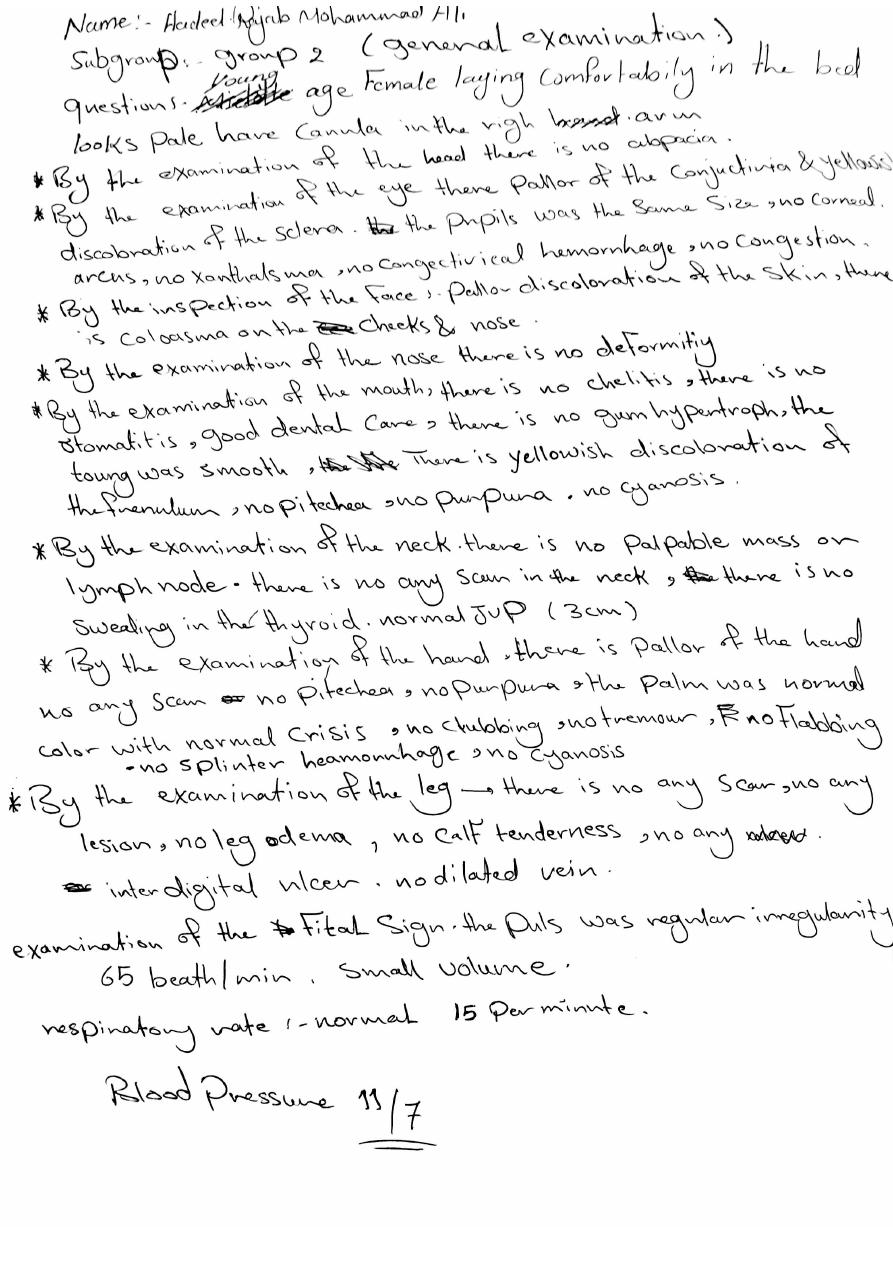 Name:- Hadeel Mohammad Ali
Subgroup:- group 2 (general examination.)
questions. young age Female laying Comfortabily in the bed
looks pale have Canula in the righ arm
* By the examination of the head there is no alopacia.
* By the examination of the eye there Pallor of the Conjuctivia & yellowis
discobration of the sclera. the pupils was the same size, no corneal.
arcus, no xanthalsma, no congectivical hemorrhage, no congestion.
* By the inspection of the face:. Pallor discoloration of the skin, there
is coloasma on the cheecks & nose.
* By the examination of the nose there is no deformitiy
* By the examination of the mouth, there is no chelitis, there is no
stomatitis, good dental care, there is no gum hypertroph, the
toung was smooth, There is yellowish discoloration of
the frenulum, no pitechea, no purpura. no cyanosis.
* By the examination of the neck. there is no palpable mass or
lymph node. there is no any scar in the neck, there is no
swealing in the thyroid. normal JVP (3cm)
* By the examination of the hand, there is pallor of the hand
no any scar no pitechea, no purpura, the palm was normal
color with normal crisis, no clubbing, no tremour, no Flabbing
- no splinter heamorrhage, no cyanosis
* By the examination of the leg → there is no any scar, no any
lesion, no leg odema, no calf tenderness, no any
interdigital ulcer. no dilated vein.
examination of the Fital Sign. the puls was regular irregularity
65 beath/min. small volume.
respiratory rate :- normal 15 per minute.
Blood Pressure 11/7